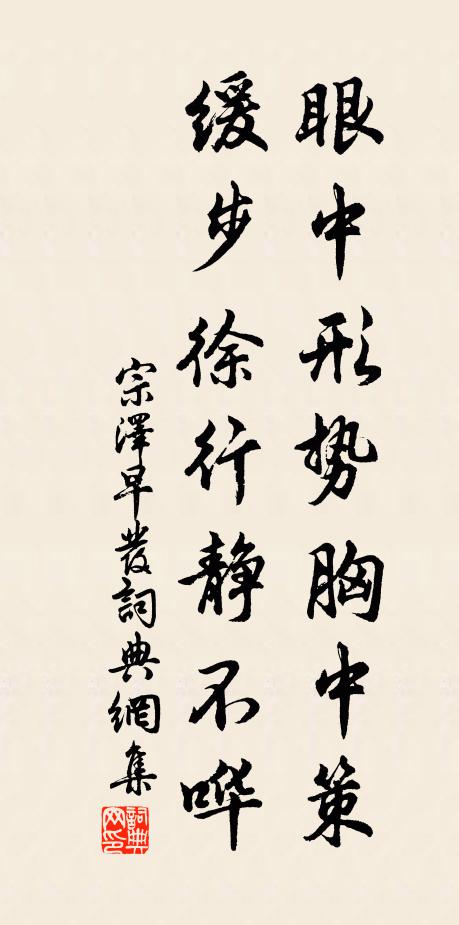 眼中形势胸中策
缓步徐行静不哗
宗澤早發詞典網集
詞典
网印